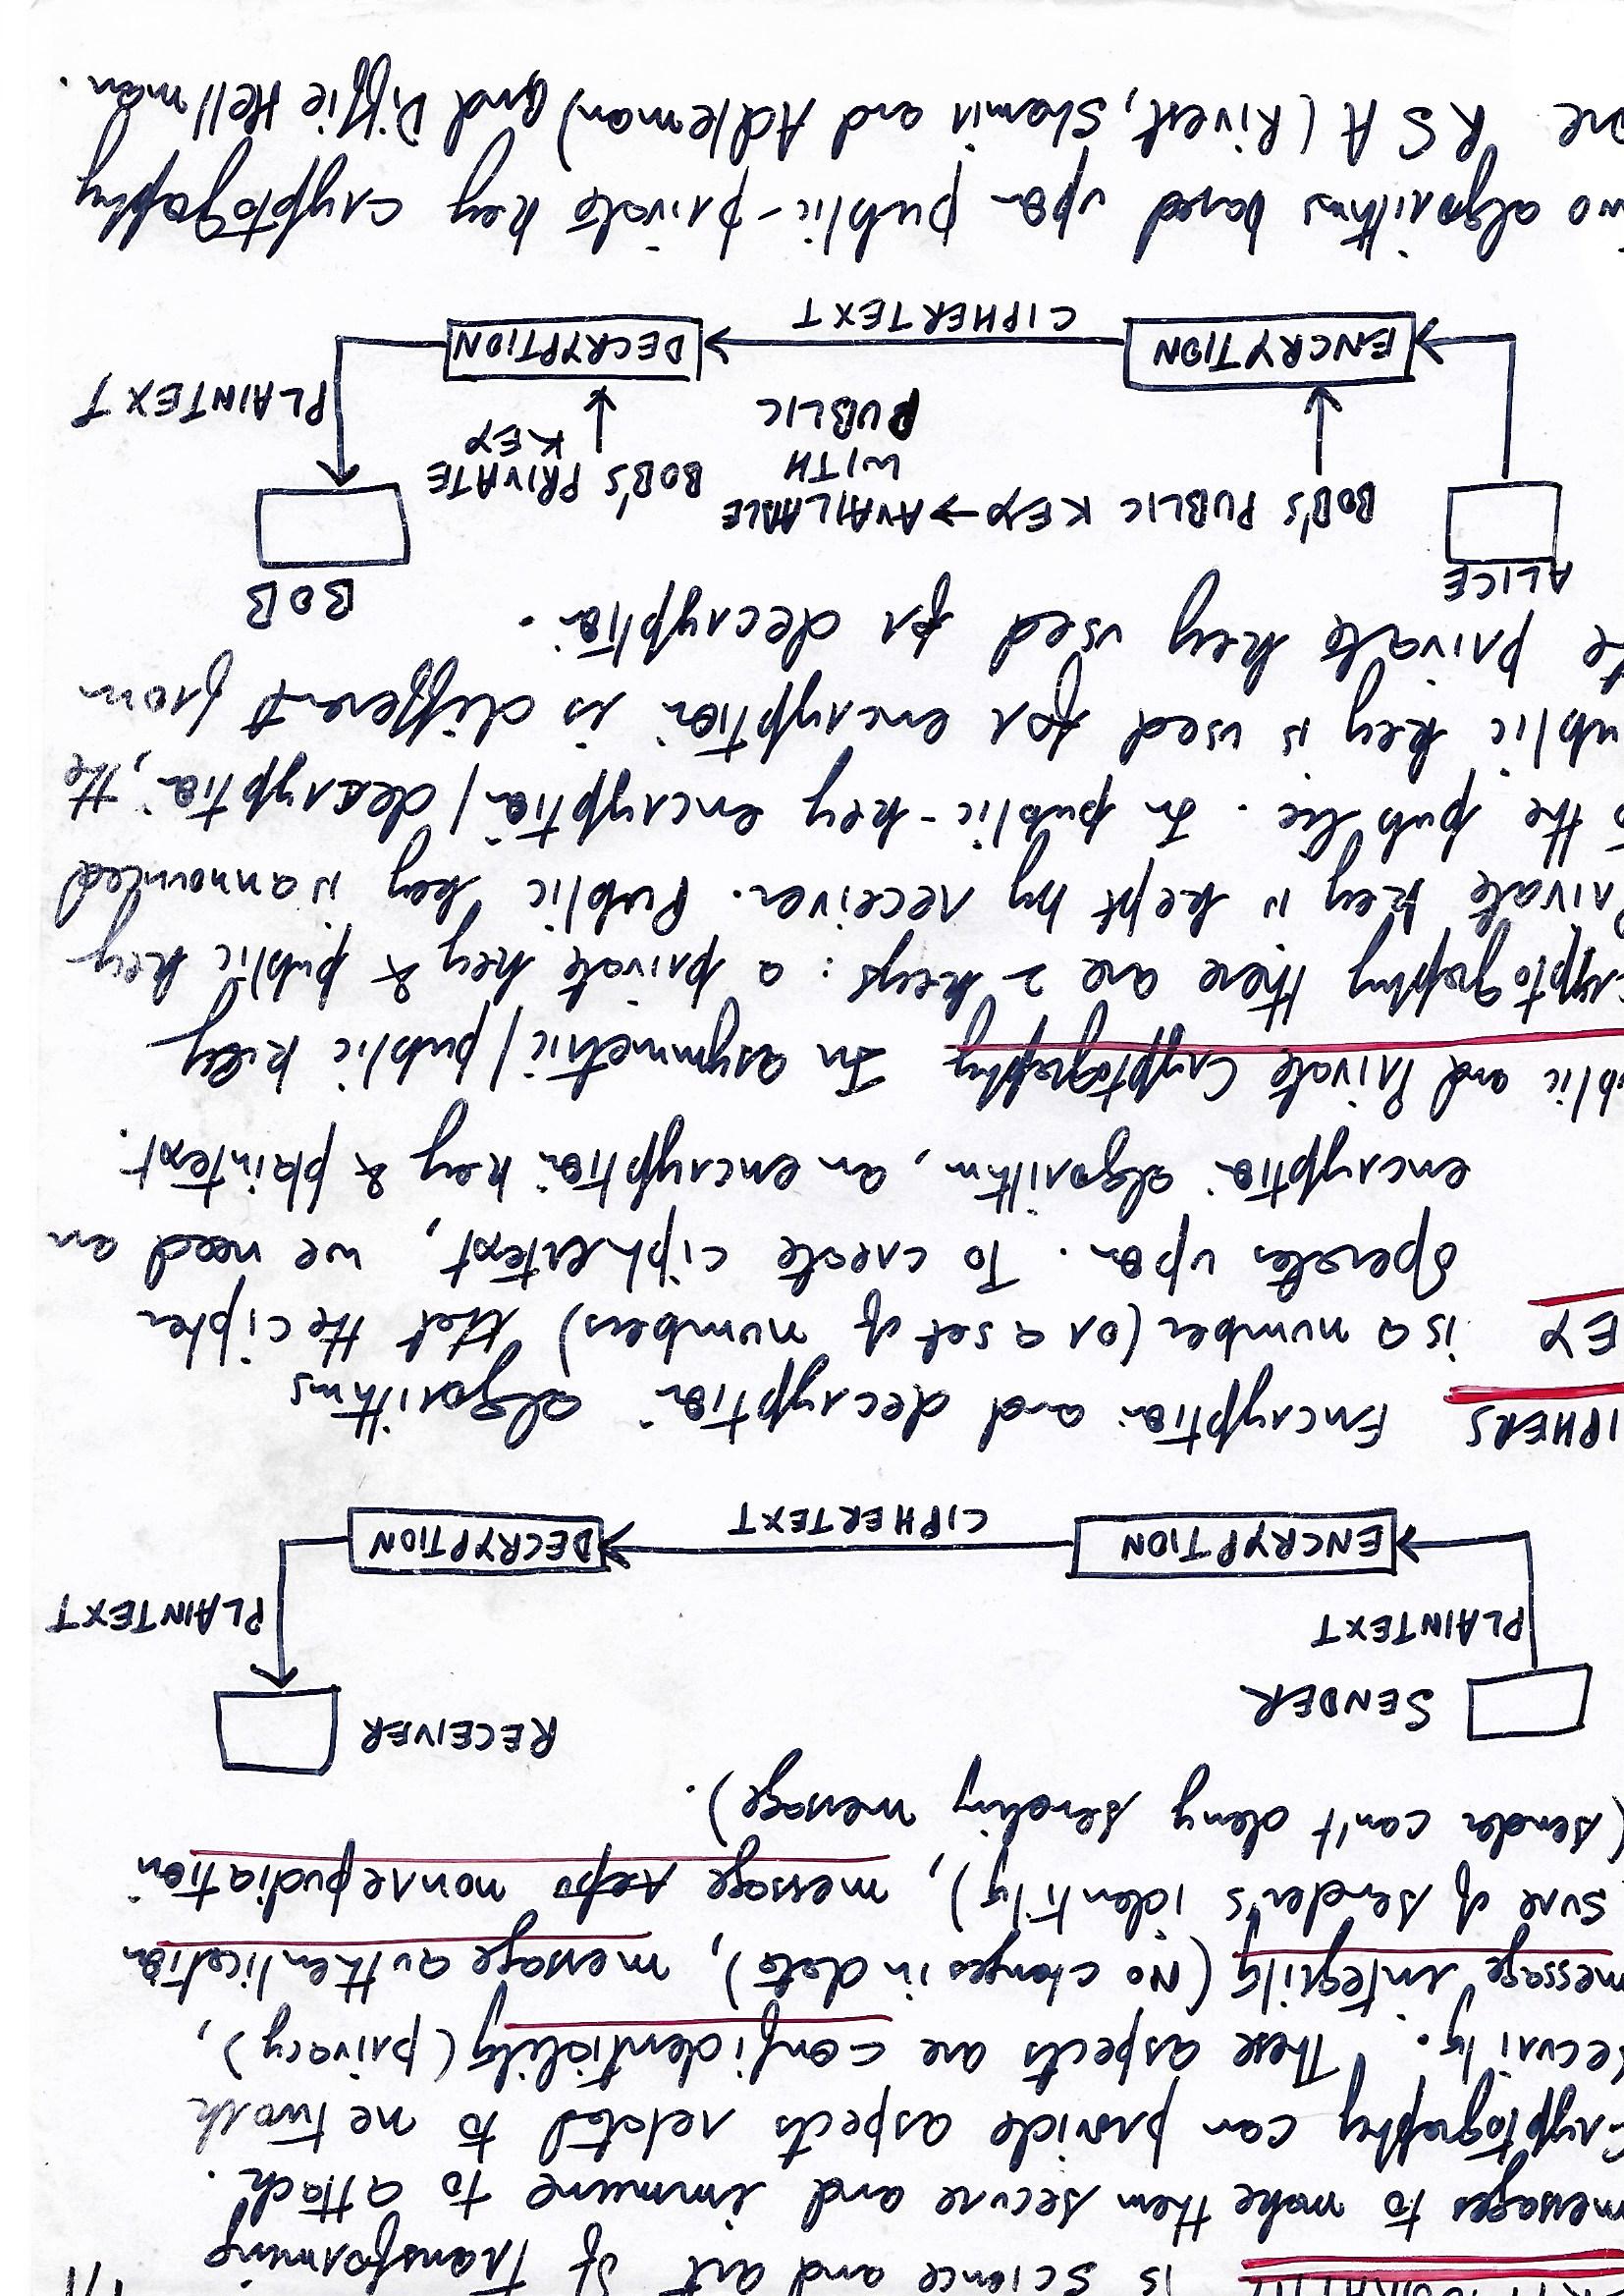 CRYPTOGRAPHY is science and art of Transforming
messages to make them secure and immune to attack.
Cryptography can provide aspects related to network
security. These aspects are confidentiality (privacy),
message integrity (No changes in data), message authentication
sure of sender's identity), message repu nonrepudiation
(sender can't deny sending message).
SENDER
RECEIVER
PLAINTEXT
PLAINTEXT
ENCRYPTION
CIPHERTEXT
DECRYPTION
IPHERS Encryption and decryption algorithms
EY is a number (or a set of numbers) that the cipher
operates upon. To create ciphertext, we need an
encryption algorithm, an encryption key & plaintext.
blic and Private Cryptography In asymmetric/public key
cryptography there are 2 keys: a private key & public key
Private key is kept by receiver. Public key is announced
o the public. In public-key encryption/decryption, the
ublic key is used for encryption is different from
te private key used for decryption.
ALICE
BOB
BOB'S PUBLIC KEY → AVAILABLE
WITH
PUBLIC
BOB'S PRIVATE
KEY
PLAINTEXT
ENCRYTION
CIPHERTEXT
DECRYPTION
wo algorithms based upon public-private key cryptography
are RSA (Rivest, Shamir and Adleman) and Diffie Hellman.